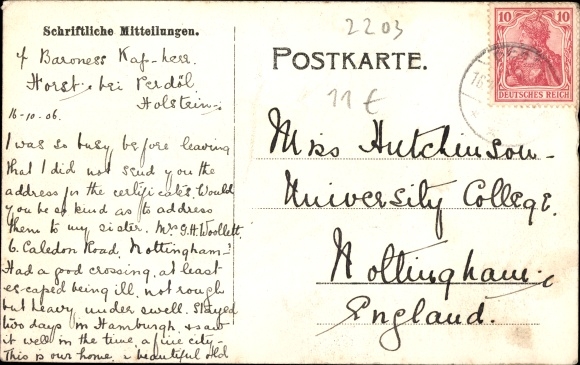 Schriftliche Mitteilungen.
POSTKARTE.
2203
11 €
10 10
DEUTSCHES REICH
c/ Baroness Kap-herr
Horst bei Perdöl
Holstein
16-10-06.
I was so busy before leaving
that I did not send you the
address for the certificates. Would
you be so kind as to address
them to my sister. Mrs G.H. Woollett
6. Caledon Road, Nottingham?
Had a good crossing, at least
escaped being ill, not rough
but heavy under swell. Stayed
two days in Hamburgh, & saw
it well in the time, a fine city-
This is our home, a beautiful old
Miss Hutchinson-
University College.
Nottingham.
England.